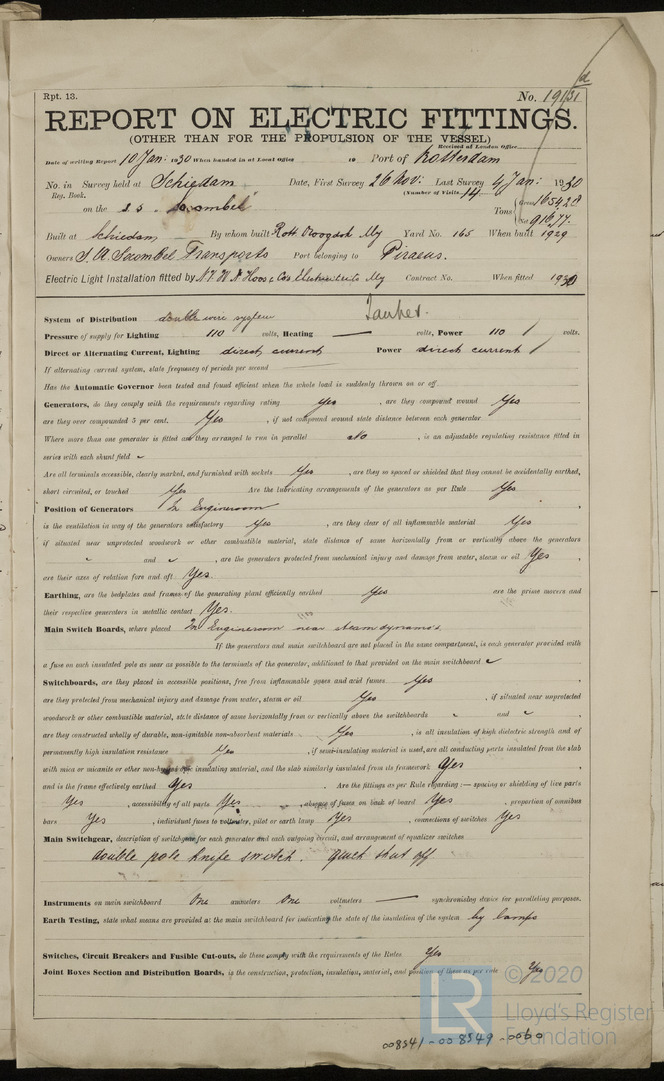 Rpt. 13.
No. 19131
REPORT ON ELECTRIC FITTINGS.
(OTHER THAN FOR THE PROPULSION OF THE VESSEL)
Received at London Office
Date of writing Report 10 Jan: 1930 When handed in at Local Office 19 Port of Rotterdam
No. in Survey held at Schiedam Date, First Survey 26 Nov: Last Survey 4 Jan: 1930
Reg. Book. (Number of Visits 14
on the S.S. Tons
Built at Schiedam By whom built Rott. Droogdok My Yard No. 165 When built 1929
Owners Transports Port belonging to Piraeus.
Electric Light Installation fitted by Contract No. When fitted 1930
System of Distribution double wire system Tanker.
Pressure of supply for Lighting 110 volts, Heating — volts, Power 110 volts.
Direct or Alternating Current, Lighting direct current Power direct current
If alternating current system, state frequency of periods per second
Has the Automatic Governor been tested and found efficient when the whole load is suddenly thrown on or off
Generators, do they comply with the requirements regarding rating yes, are they compound wound Yes
are they over compounded 5 per cent. Yes, if not compound wound state distance between each generator
Where more than one generator is fitted are they arranged to run in parallel no, is an adjustable regulating resistance fitted in
series with each shunt field
Are all terminals accessible, clearly marked, and furnished with sockets Yes, are they so spaced or shielded that they cannot be accidentally earthed,
short circuited, or touched Yes Are the lubricating arrangements of the generators as per Rule Yes
Position of Generators In Engineroom
is the ventilation in way of the generators satisfactory Yes, are they clear of all inflammable material Yes
if situated near unprotected woodwork or other combustible material, state distance of same horizontally from or vertically above the generators
and, are the generators protected from mechanical injury and damage from water, steam or oil Yes,
are their axes of rotation fore and aft Yes.
Earthing, are the bedplates and frames of the generating plant efficiently earthed Yes are the prime movers and
their respective generators in metallic contact Yes.
Main Switch Boards, where placed In Engineroom near steamdynamo's.
If the generators and main switchboard are not placed in the same compartment, is each generator provided with
a fuse on each insulated pole as near as possible to the terminals of the generator, additional to that provided on the main switchboard
Switchboards, are they placed in accessible positions, free from inflammable gases and acid fumes Yes,
are they protected from mechanical injury and damage from water, steam or oil Yes, if situated near unprotected
woodwork or other combustible material, state distance of same horizontally from or vertically above the switchboards and,
are they constructed wholly of durable, non-ignitable non-absorbent materials Yes, is all insulation of high dielectric strength and of
permanently high insulation resistance Yes, if semi-insulating material is used, are all conducting parts insulated from the slab
with mica or micanite or other non-hygroscopic insulating material, and the slab similarly insulated from its framework Yes,
and is the frame effectively earthed Yes. Are the fittings as per Rule regarding:— spacing or shielding of live parts
Yes, accessibility of all parts Yes, absence of fuses on back of board Yes, proportion of omnibus
bars Yes, individual fuses to voltmeter, pilot or earth lamp Yes, connections of switches Yes
Main Switchgear, description of switchgear for each generator and each outgoing circuit, and arrangement of equalizer switches
double pole knife switch. quick shut off
Instruments on main switchboard One ammeters One voltmeters — synchronising device for paralleling purposes.
Earth Testing, state what means are provided at the main switchboard for indicating the state of the insulation of the system by lamps
Switches, Circuit Breakers and Fusible Cut-outs, do these comply with the requirements of the Rules Yes
Joint Boxes Section and Distribution Boards, is the construction, protection, insulation, material, and position of these as per rule Yes
© 2020
LR
Lloyd's Register
Foundation
008541-008549-0060